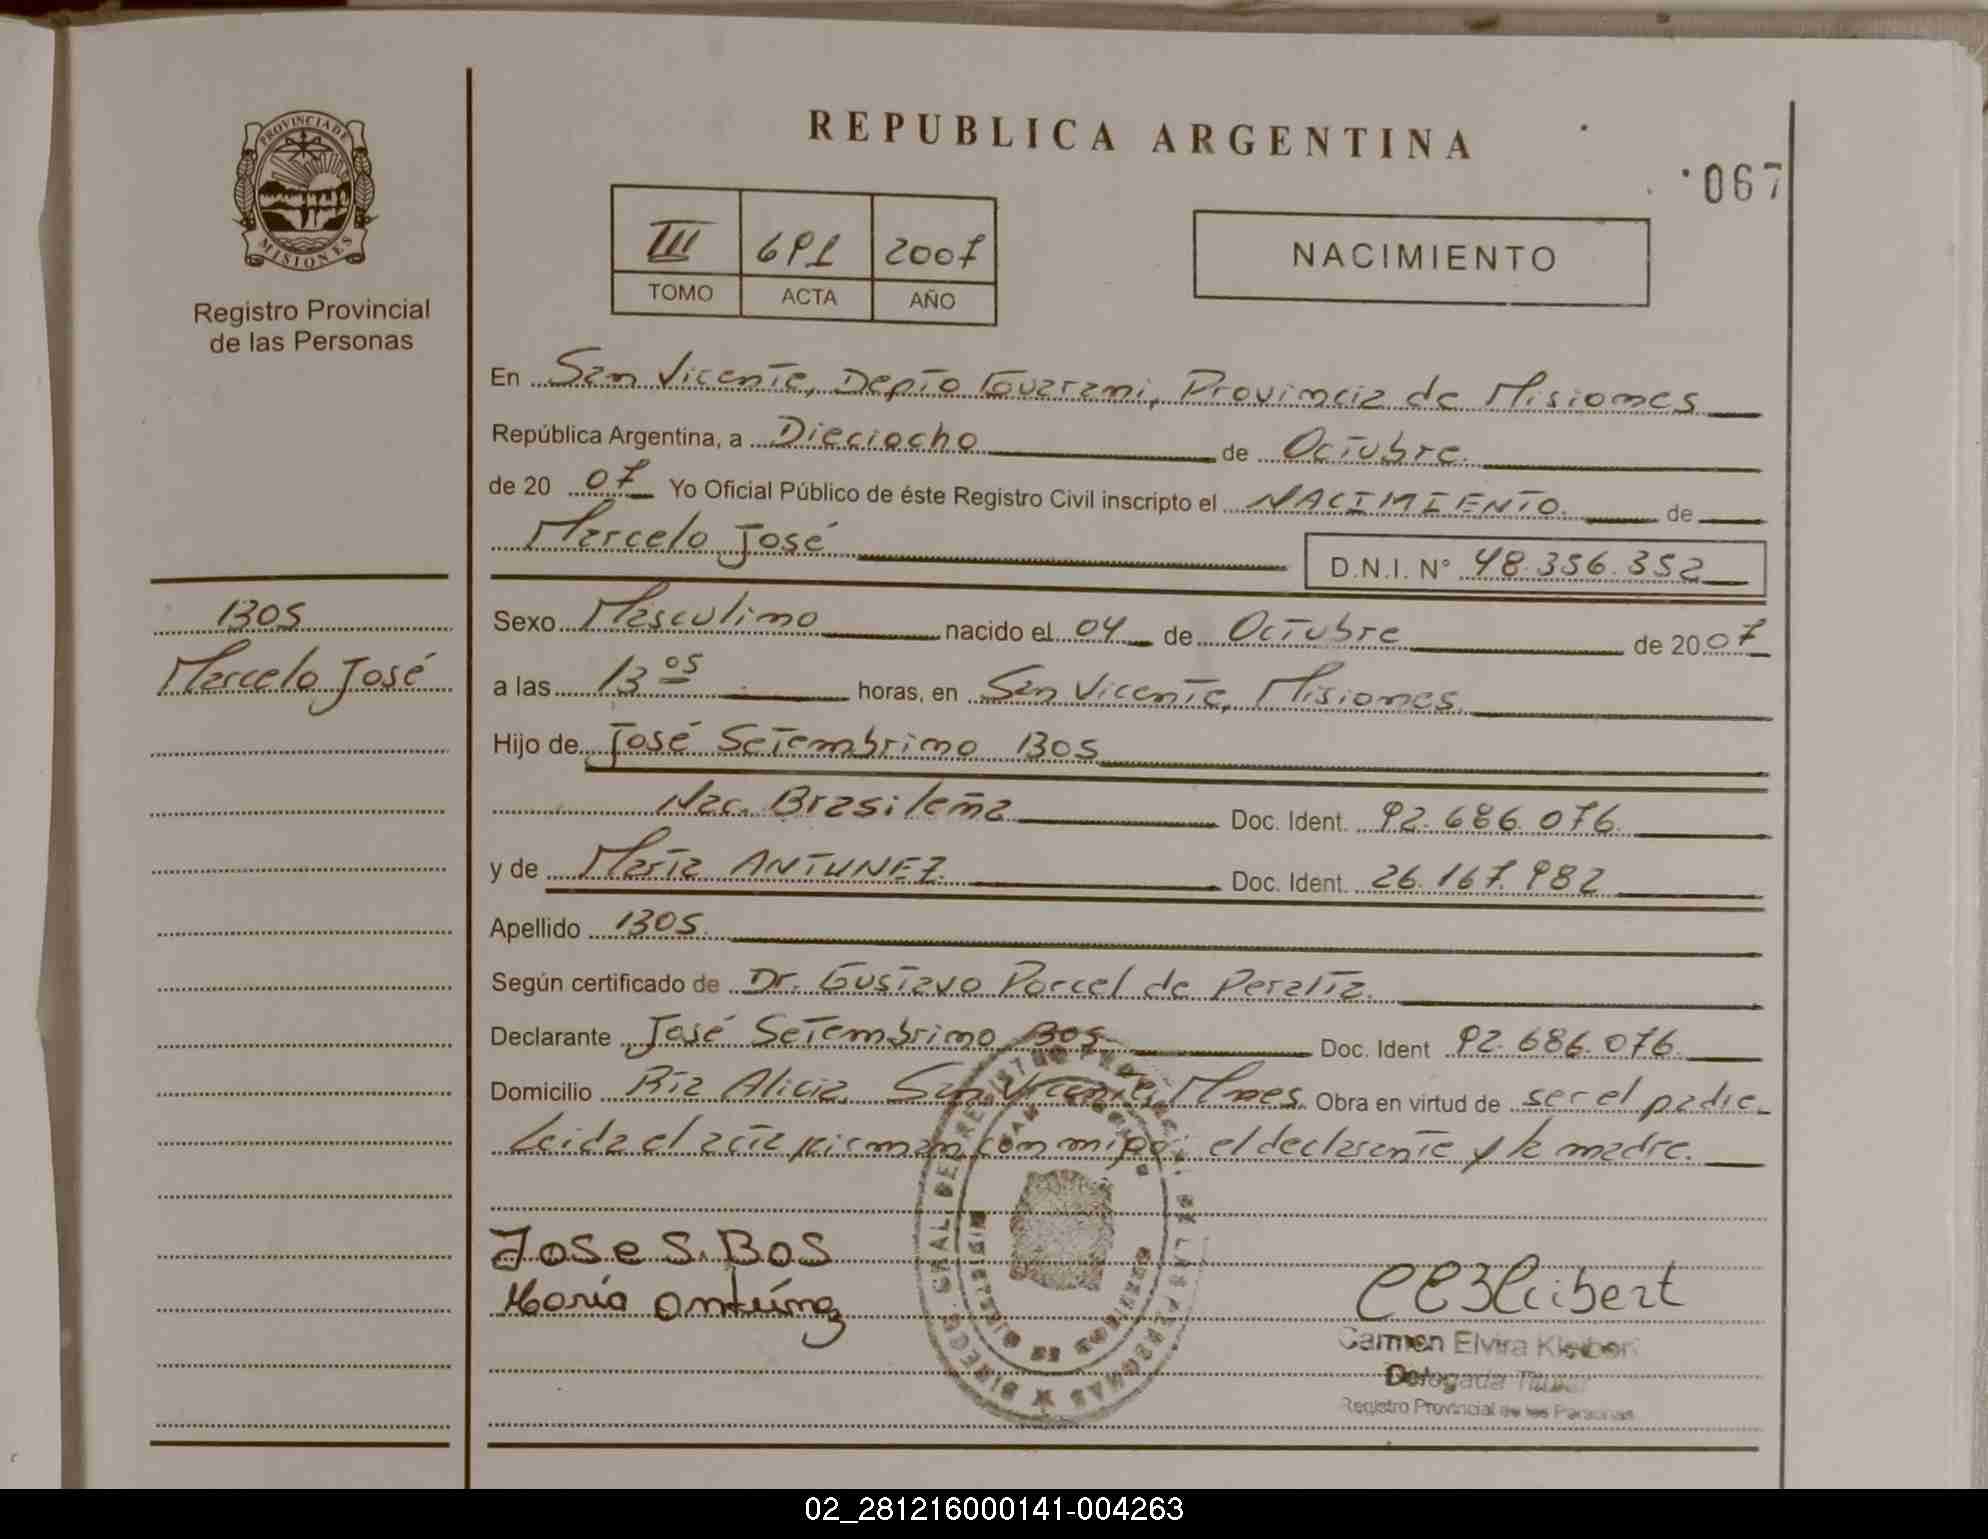 REPUBLICA ARGENTINA
067
PROVINCIA DE
MISIONES
Registro Provincial
de las Personas
III 691 2007
TOMO ACTA AÑO
NACIMIENTO
En San Vicente, Depto Guarani, Provincia de Misiones
República Argentina, a Dieciocho de Octubre
de 20 07 Yo Oficial Público de éste Registro Civil inscripto el NACIMIENTO de
Marcelo José
D.N.I. N° 48.356.352
BOS
Marcelo José
Sexo Masculino nacido el 04 de Octubre de 20 07
a las 13 05 horas, en San Vicente, Misiones
Hijo de José Setembrino BOS
Nac. Brasileña Doc. Ident. 92.686.076
y de María ANTUNEZ Doc. Ident. 26.167.982
Apellido BOS
Según certificado de Dr. Gustavo Porcel de Peralta
Declarante José Setembrino BOS Doc. Ident 92.686.076
Domicilio Pia Alicia San Vicente, Mnes Obra en virtud de ser el padre
Leida el acta firman con migo; el declarante y la madre.
Jose S. Bos
María Antúnez
Carmen Elvira
Delegada Titular
Registro Provincial de las Personas
02_281216000141-004263